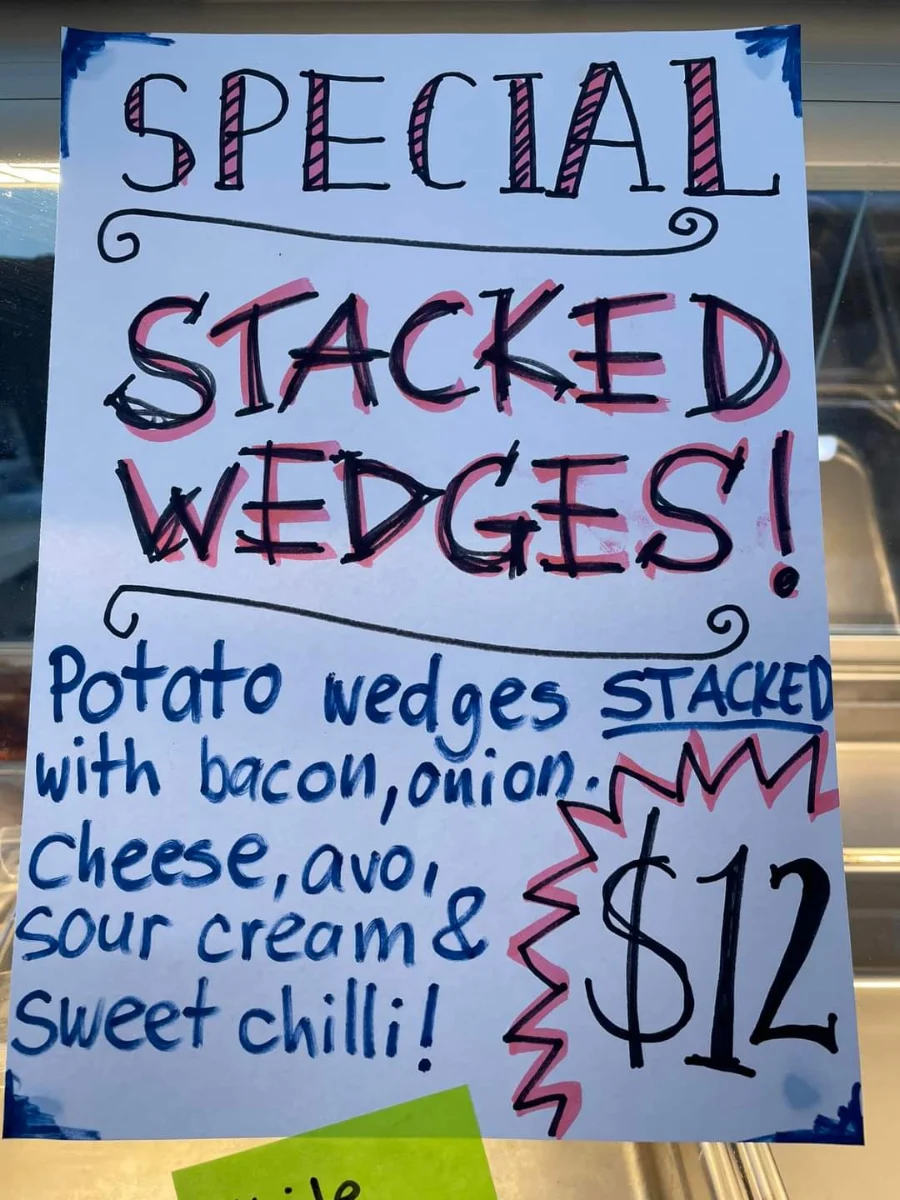 SPECIAL
STACKED
WEDGES!
Potato wedges STACKED
with bacon, onion.
Cheese, avo,
sour cream &
sweet chilli!
$12